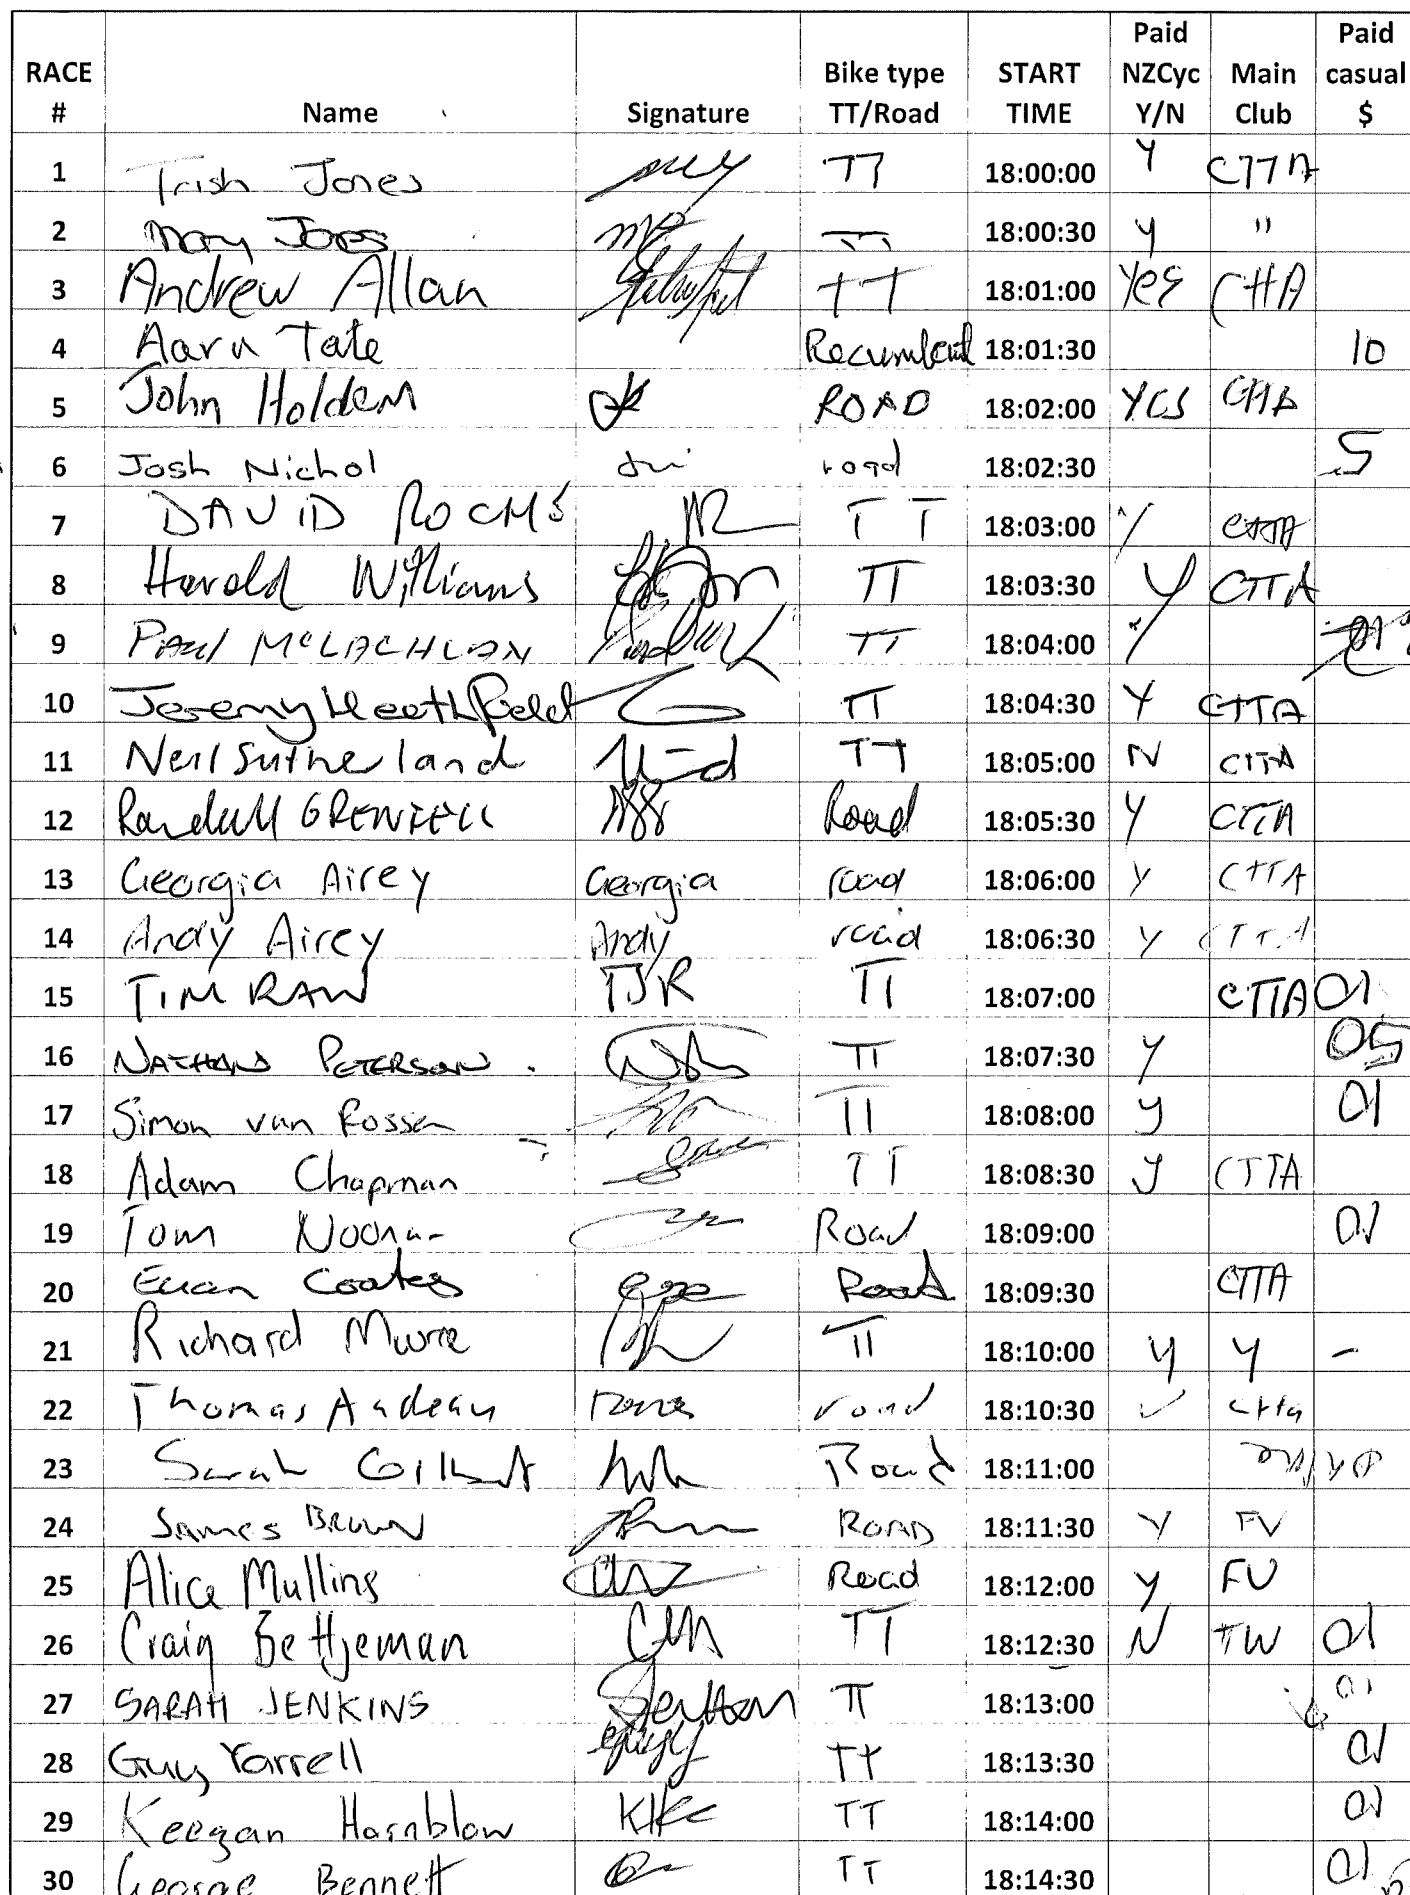 RACE # Name Signature Bike type TT/Road START TIME Paid NZCyc Y/N Main Club Paid casual $
1 Trish Jones TT 18:00:00 Y CTTA
2 Jones TT 18:00:30 Y "
3 Andrew Allan TT 18:01:00 Yes CttA
4 Aarn Tate Recumbent 18:01:30 10
5 John Holdem ROAD 18:02:00 YES CttA
6 Josh Nichol road 18:02:30 5
7 DAVID TT 18:03:00 Y CTTA
8 Harold Williams TT 18:03:30 Y CTTA
9 PAUL McLACHLAN TT 18:04:00 Y
10 Jeremy Heathfield TT 18:04:30 Y CTTA
11 Neil Sutherland TT 18:05:00 N CTTA
12 Randall GRENFELL Road 18:05:30 Y CTTA
13 Georgia Airey Georgia road 18:06:00 Y CTTA
14 Andy Airey Andy road 18:06:30 Y CTTA
15 TIM RAW TJR TT 18:07:00 CTTA 01
16 PETERSON. TT 18:07:30 Y 05
17 Simon van Rossen TT 18:08:00 y 01
18 Adam Chapman TT 18:08:30 y CTTA
19 Tom Road 18:09:00 01
20 Euan Coates Road 18:09:30 CTTA
21 Richard TT 18:10:00 y y -
22 Thomas road 18:10:30 ✓ ctta
23 Sarah Gilbert Road 18:11:00
24 James BROWN ROAD 18:11:30 Y FV
25 Alice Mullins Road 18:12:00 Y FV
26 Craig Bettjeman TT 18:12:30 N TW 01
27 SARAH JENKINS TT 18:13:00 01
28 Guy Yarrell TT 18:13:30 01
29 Keegan Hornblow TT 18:14:00 01
30 George Bennett TT 18:14:30 01